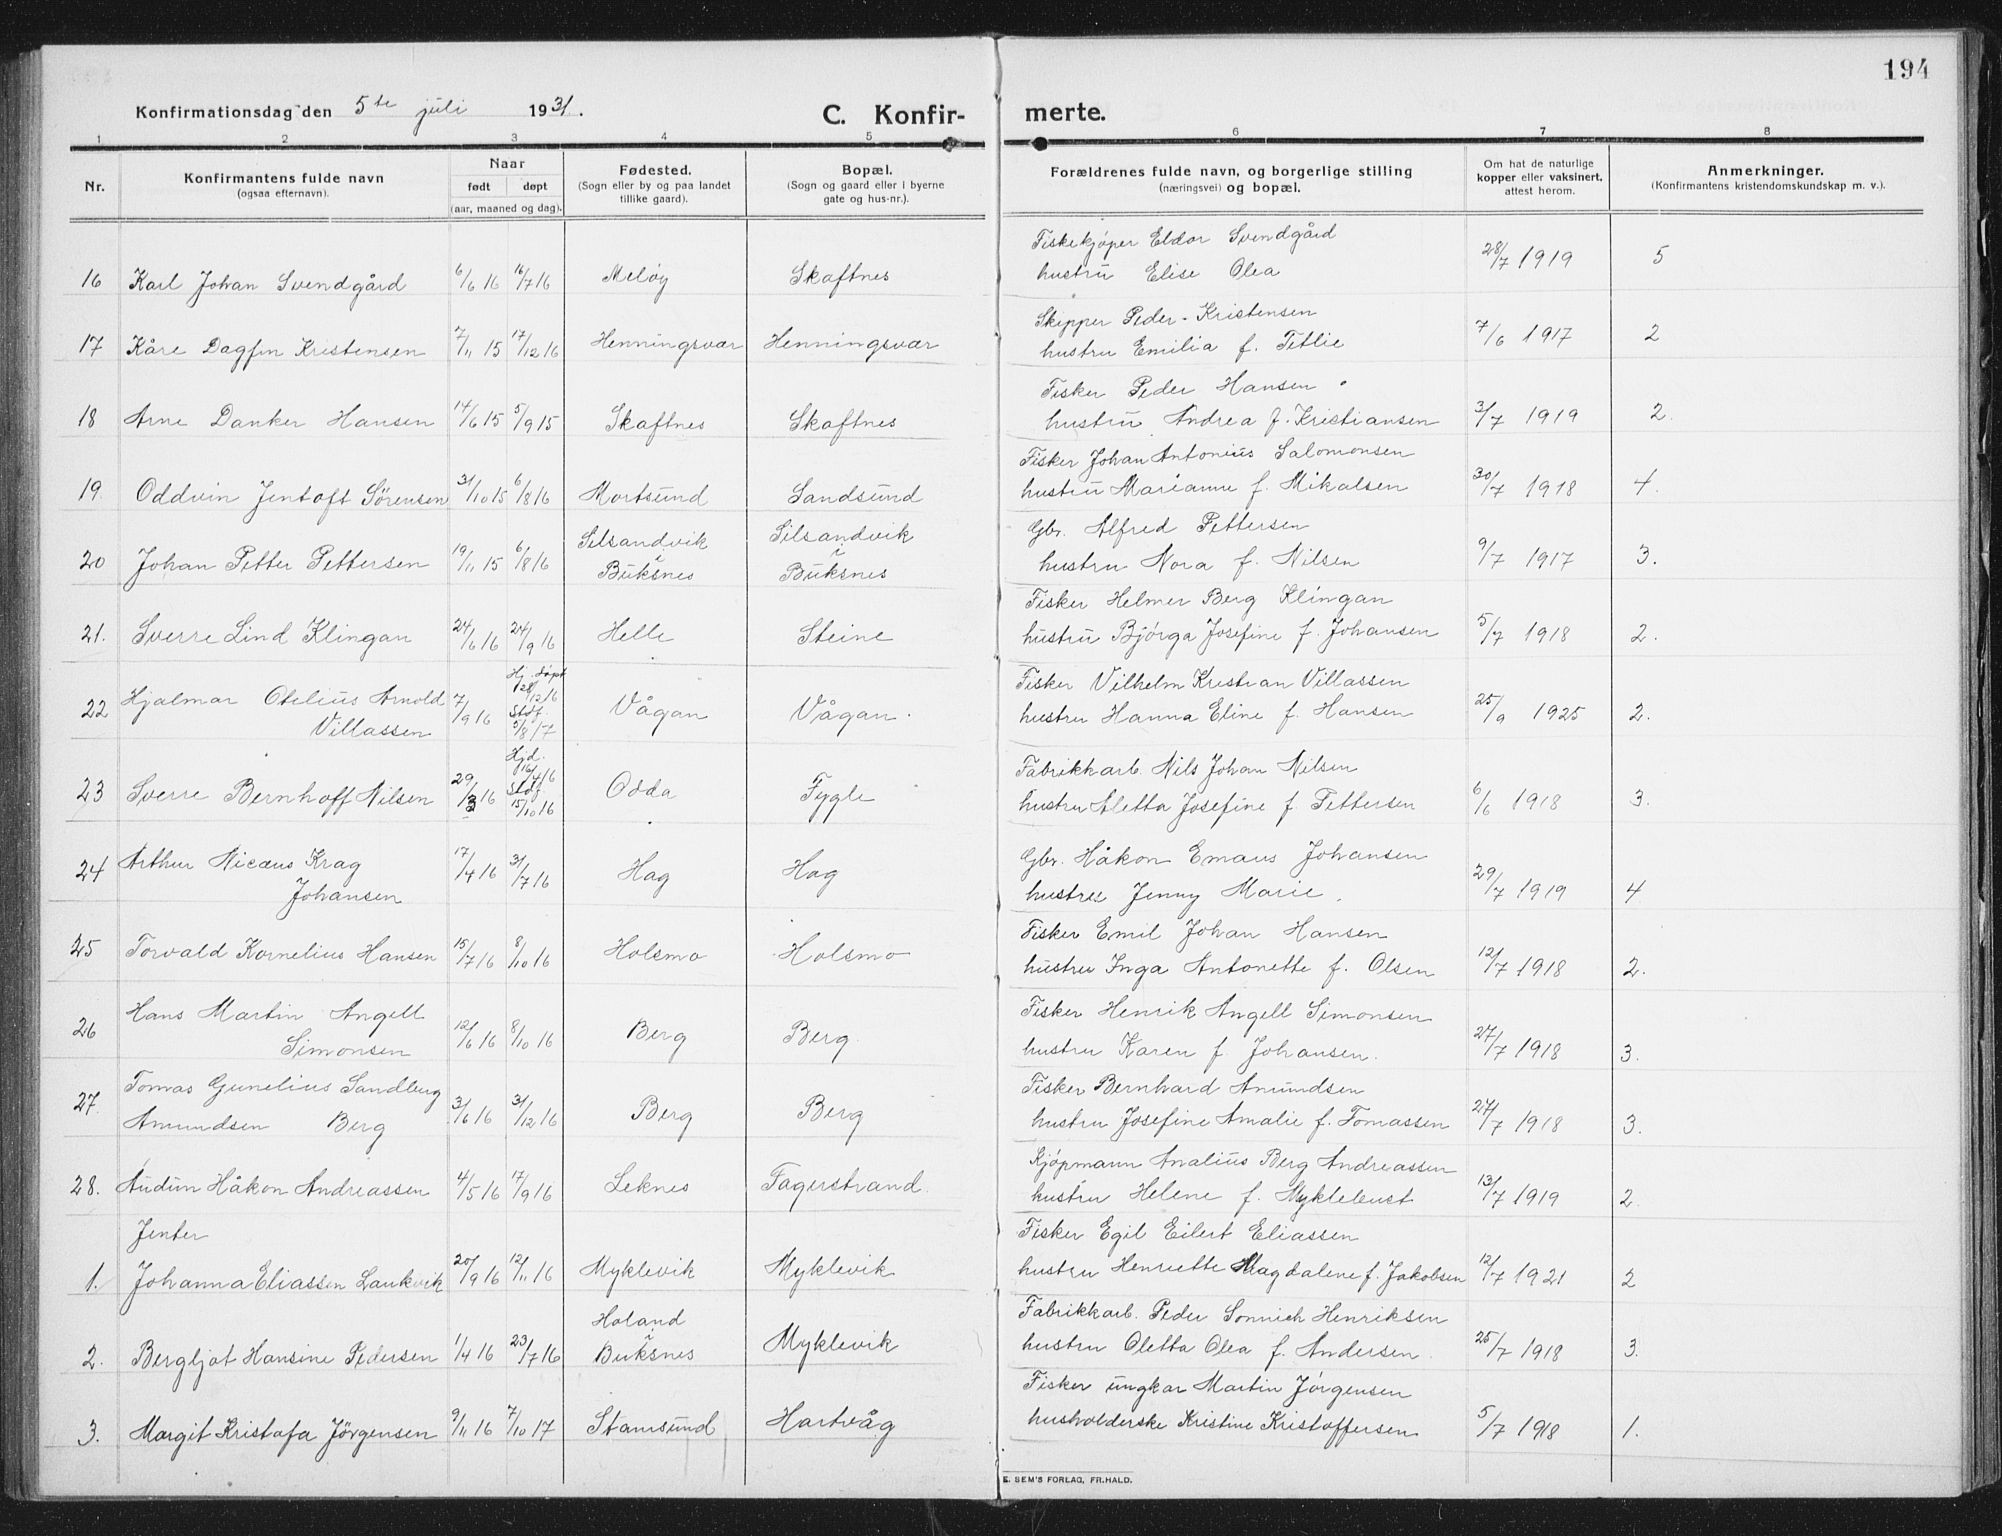 194
Konfirmationsdag den 5te juli 1931.
C. Konfirmerte.
1 2 3 4 5 6 7 8
Nr.
Konfirmantens fulde navn
(ogsaa efternavn).
Naar
født døpt
(aar, maaned og dag).
Fødested.
(Sogn eller by og paa landet
tillike gaard).
Bopæl.
(Sogn og gaard eller i byerne
gate og hus-nr.).
Forældrenes fulde navn, og borgerlige stilling
(næringsvei) og bopæl.
Om hat de naturlige
kopper eller vaksinert,
attest herom.
Anmerkninger.
(Konfirmantens kristendomskundskap m. v.).
Fiskekjøper Eldor Svendgård
16 Karl Johan Svendgård 6/6 16 16/7 16 Meløy Skaftnes hustru Elise Olea 28/7 1919 5
Skipper Peder Kristensen
17 Kåre Dagfin Kristensen 7/11 15 17/12 16 Henningsvær Henningsvær hustru Emilia f. Tetlie 7/6 1917 2
Fisker Peder Hansen
18 Arne Danker Hansen 14/6 15 5/9 15 Skaftnes Skaftnes hustru Andrea f. Kristiansen 3/7 1919 2.
Fisker Johan Antonius Salomonsen
19. Oddvin Jentoft Sørensen 31/10 15 6/8 16 Mortsund Sandsund hustru Marianne f. Mikalsen 30/7 1918 4.
Silsandvik Silsandvik Gbr. Alfred Pettersen
20 Johan Petter Pettersen 19/11 15 6/8 16 i Buksnes i Buksnes hustru Nora f. Nilsen 9/7 1917 3.
Fisker Helmer Berg Klingan
21. Sverre Lind Klingan 24/6 16 24/9 16 Helle Steine hustru Bjørga Josefine f. Johansen 5/7 1918 2.
Hjalmar Otelius Arnold Hj. døpt 28/12 16 Fisker Vilhelm Kristian Villassen
22 Villassen 7/9 16 Stdf. 5/8 17 Vågan Vågan. hustru Hanna Eline f. Hansen 25/9 1925 2.
Hjd. 16/4 16 Fabrikkarb. Nils Johan Nilsen
23 Sverre Bernhoff Nilsen 29/3 16 Stdf. 15/10 16 Odda Fygle hustru Aletta Josefine f. Pettersen 6/6 1918 3.
Arthur Nicæus Krag Gbr. Håkon Emaus Johansen
24 Johansen 17/4 16 31/7 16 Hag Hag hustru Jenny Marie. 29/7 1919 4
Fisker Emil Johan Hansen
25 Torvald Kornelius Hansen 15/7 16 8/10 16 Holsmo Holsmo hustru Inga Antonette f. Olsen 12/7 1918 2.
Hans Martin Angell Fisker Henrik Angell Simonsen
26 Simonsen 12/6 16 8/10 16 Berg Berg. hustru Karen f. Johansen. 27/7 1918 3.
Tomas Gunelius Sandberg Fisker Bernhard Amundsen
27. Amundsen Berg 3/6 16 31/12 16 Berg Berg hustru Josefine Amalie f. Tomassen 27/7 1918 3.
Kjøpmann Analius Berg Andreassen
28. Audun Håkon Andreassen 4/5 16 17/9 16 Leknes Fagerstrand. hustru Helene f. Myklebust 13/7 1919 2.
Jenter Fisker Egil Eilert Eliassen
1. Johanna Eliassen Laukvik 20/9 16 12/11 16 Myklevik Myklevik hustru Henriette Magdalene f. Jakobsen 12/7 1921 2
Holand Fabrikkarb. Peder Sonnich Henriksen
2. Bergljot Hansine Pedersen 1/4 16 23/7 16 i Buksnes Myklevik hustru Oletta Olea f. Andersen. 25/7 1918 3.
Fisker ungkar Martin Jørgensen
3. Margit Kristofa Jørgensen 9/11 16 7/10 17 Stamsund Hartvåg husholderske Kristine Kristoffersen 5/7 1918 1.
E. SEM'S FORLAG, FR.HALD.